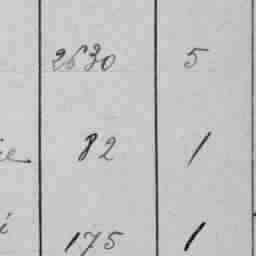 2530 5
ie 82 1
i 175 1